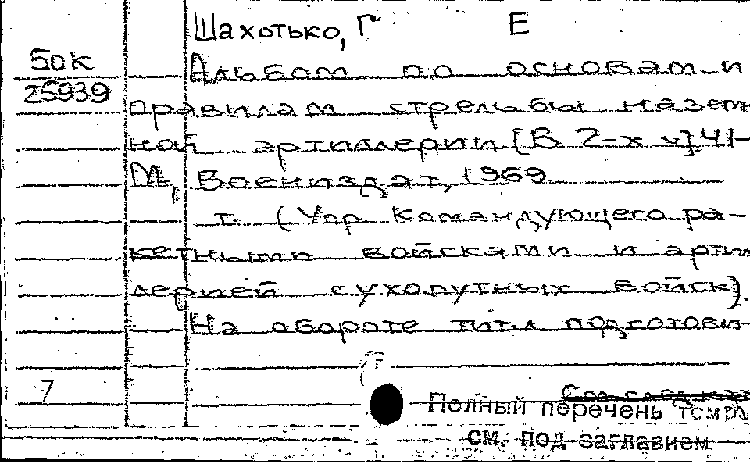 Шахотько, Г Е
50к Альбом по основам и
25939 правилам стрельбы назем
ной артиллерии [В 2-х ч] Ч1-
М, Воениздат, 1969
т. (Упр Командующего ра-
кетными войсками и арти
лерией сухопутных войск).
На обороте титл подготови
7
Полный перечень томов
см. под заглавием